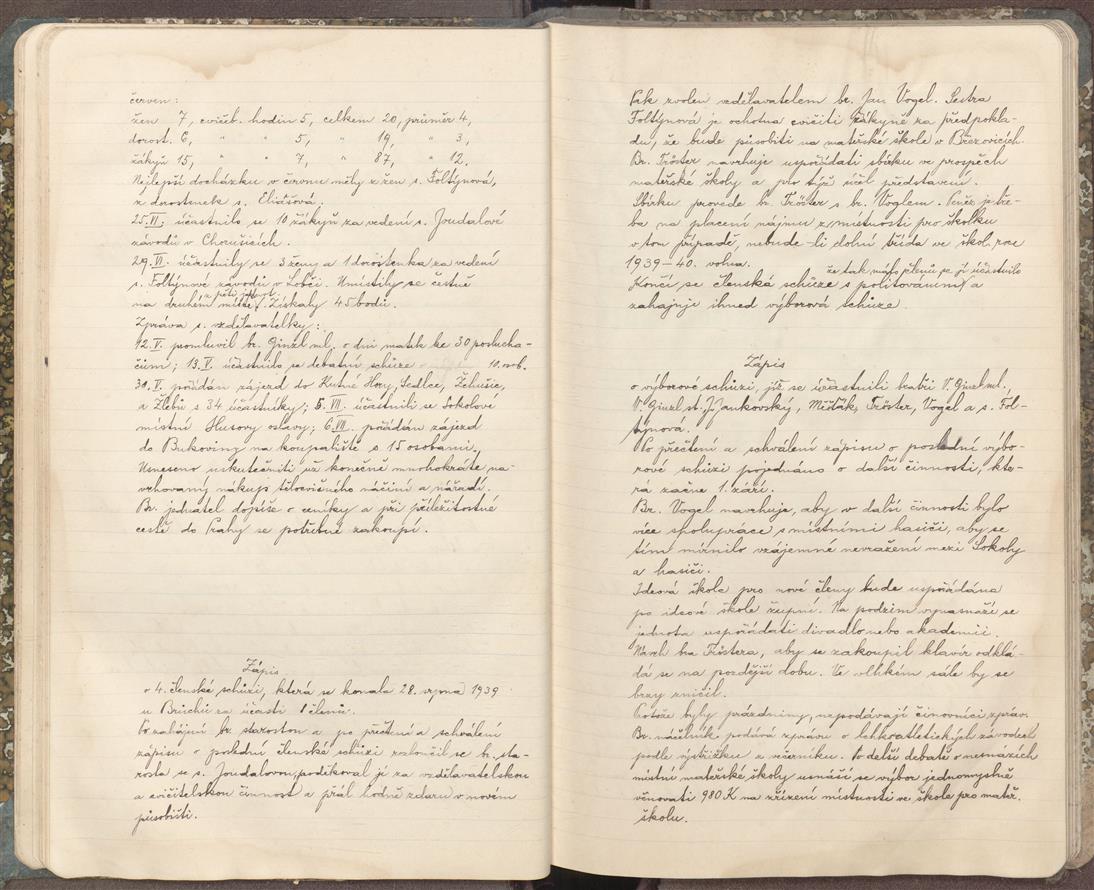 červen:
žen 7, cvičeb. hodin 5, celkem 20, průměr 4,
dorost. 6, " " 5, " 19, " 3,
žákyň 15, " " 7, " 87, " 12.
Nejlepší docházku v červnu měly z žen s. Foltýnová,
z dorostenek s. Eliášová.
25.VI. účastnilo se 10 žákyň za vedení s. Joudalové
závodů v Chorušicích.
29.VI. účastnily se 3 ženy a 1 dorostenka za vedení
s. Foltýnové závodů v Lobči. Umístily se čestně
na druhém místě z pěti jednot. Získaly 45 bodů.
Zpráva s. vzdělavatelky:
12.V. promluvil br. Ginzl ml. o dni matek ke 30 poslucha-
čům; 13.V. účastnilo se debatní schůze 10 osob.
30.V. pořádán zájezd do Kutné Hory, Sedlce, Žehušic,
a Žlebů s 34 účastníky; 5.VII. účastnili se Sokolové
místní Husovy oslavy; 6.VII. pořádán zájezd
do Bukoviny na koupaliště s 15 osobami.
Usneseno uskutečniti už konečně mnohokráte na-
vrhovaný nákup tělocvičného náčiní a nářadí.
Br. jednatel dopíše o ceníky a při příležitostné
cestě do Prahy se potřebné zakoupí.
Zápis
o 4. členské schůzi, která se konala 28. srpna 1939
u Bruchů za účasti 8 členů.
Po zahájení br. starostou a po přečtení a schválení
zápisu o poslední členské schůzi rozloučil se br. sta-
rosta se s. Joudalovou, poděkoval jí za vzdělavatelskou
a cvičitelskou činnost a přál hodně zdaru v novém
působišti.
Pak zvolen vzdělavatelem br. Jan Vogel. Sestra
Foltýnová je ochotna cvičiti žákyně za předpokla-
du, že bude působiti na mateřské škole v Březovicích.
Br. Tröster navrhuje uspořádati sbírku ve prospěch
mateřské školy a pro týž účel představení.
Sbírku provede br. Tröster s br. Voglem. Peněz je tře-
ba na placení nájmu z místnosti pro školku
v tom případě, nebude-li dolní třída ve škol. roce
1939–40. volna.
Končí se členská schůze s politováním, že tak málo členů se jí účastnilo a
zahajuje ihned výborová schůze.
Zápis
o výborové schůzi, jíž se účastnili bratři V. Ginzl ml.,
V. Ginzl st., J. Jankovský, Mišťák, Tröster, Vogel a s. Fol-
týnová.
Po přečtení a schválení zápisu o poslední výbo-
rové schůzi pojednáno o další činnosti, kte-
rá začne 1. září.
Br. Vogel navrhuje, aby v další činnosti bylo
více spolupráce s místními hasiči, aby se
tím mírnilo vzájemné nevražení mezi Sokoly
a hasiči.
Ideová škola pro nové členy bude uspořádána
po ideové škole župní. Na podzim vynasnaží se
jednota uspořádati divadlo nebo akademii.
Návrh bra Tröstera, aby se zakoupil klavír odklá-
dá se na pozdější dobu. Ve vlhkém sále by se
brzy zničil.
Protože byly prázdniny, nepodávají činovníci zpráv.
Br. náčelník podává zprávu o lehkoatletických závodech
podle výstřižku z večerníku. Po delší debatě o nesnázích
místní mateřské školy usnáší se výbor jednomyslně
věnovati 980 K na zřízení místnosti ve škole pro mateř.
školu.